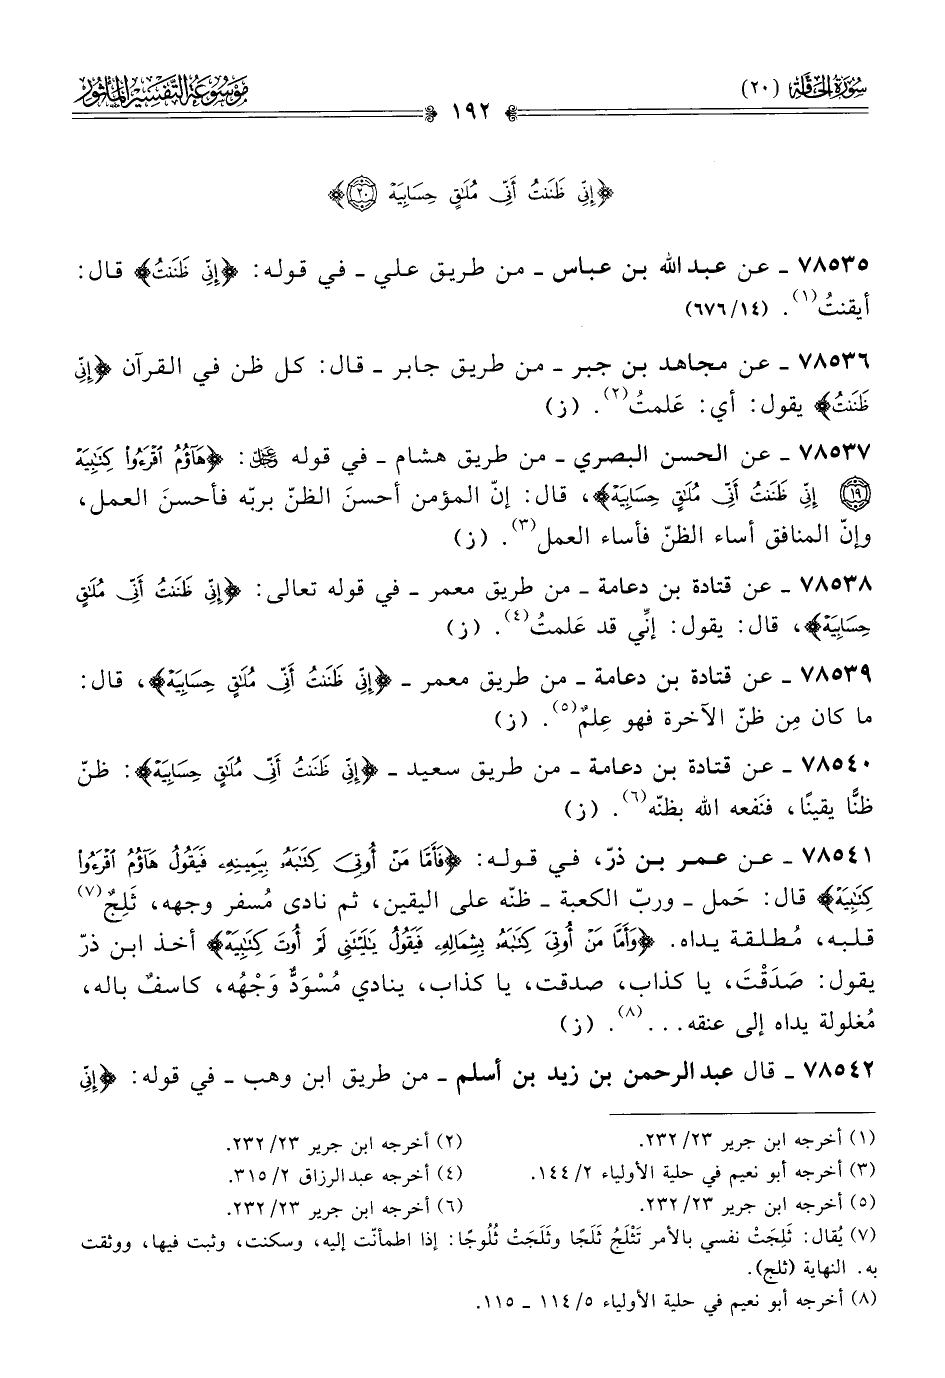 سُورَةُ الحَاقَّة (٢٠)
مَوْسُوعَةُ التَّفْسِيرِ المَأْثُور
١٩٢
﴿إِنِّي ظَنَنتُ أَنِّي مُلَٰقٍ حِسَابِيَهۡ ۝٢٠﴾
٧٨٥٣٥ ـ عن عبد الله بن عباس ـ من طريق علي ـ في قوله: ﴿إِنِّي ظَنَنتُ﴾ قال:
أيقنتُ(١). (١٤/٦٧٦)
٧٨٥٣٦ ـ عن مجاهد بن جبر ـ من طريق جابر ـ قال: كل ظن في القرآن ﴿إِنِّي
ظَنَنتُ﴾ يقول: أي: عَلمتُ(٢). (ز)
٧٨٥٣٧ ـ عن الحسن البصري ـ من طريق هشام ـ في قوله ﷿: ﴿هَآؤُمُ ٱقۡرَءُواْ كِتَٰبِيَهۡ
۝١٩ إِنِّي ظَنَنتُ أَنِّي مُلَٰقٍ حِسَابِيَهۡ﴾، قال: إنّ المؤمن أحسنَ الظنّ بربّه فأحسنَ العمل،
وإنّ المنافق أساء الظنّ فأساء العمل(٣). (ز)
٧٨٥٣٨ ـ عن قتادة بن دعامة ـ من طريق معمر ـ في قوله تعالى: ﴿إِنِّي ظَنَنتُ أَنِّي مُلَٰقٍ
حِسَابِيَهۡ﴾، قال: يقول: إنِّي قد عَلمتُ(٤). (ز)
٧٨٥٣٩ ـ عن قتادة بن دعامة ـ من طريق معمر ـ ﴿إِنِّي ظَنَنتُ أَنِّي مُلَٰقٍ حِسَابِيَهۡ﴾، قال:
ما كان مِن ظنّ الآخرة فهو عِلمٌ(٥). (ز)
٧٨٥٤٠ ـ عن قتادة بن دعامة ـ من طريق سعيد ـ ﴿إِنِّي ظَنَنتُ أَنِّي مُلَٰقٍ حِسَابِيَهۡ﴾: ظنّ
ظنًّا يقينًا، فنَفعه الله بظنّه(٦). (ز)
٧٨٥٤١ ـ عن عمر بن ذرّ، في قوله: ﴿فَأَمَّا مَنۡ أُوتِيَ كِتَٰبَهُۥ بِيَمِينِهِۦ فَيَقُولُ هَآؤُمُ ٱقۡرَءُواْ
كِتَٰبِيَهۡ﴾ قال: حَمل ـ وربّ الكعبة ـ ظنّه على اليقين، ثم نادى مُسفر وجهه، ثَلِجٌ(٧)
قلبه، مُطلقة يداه. ﴿وَأَمَّا مَنۡ أُوتِيَ كِتَٰبَهُۥ بِشِمَالِهِۦ فَيَقُولُ يَٰلَيۡتَنِي لَمۡ أُوتَ كِتَٰبِيَهۡ﴾ أخذ ابن ذرّ
يقول: صَدَقْتَ، يا كذاب، صدقت، يا كذاب، ينادي مُسْوَدٌّ وَجْهُه، كاسفٌ باله،
مُغلولة يداه إلى عنقه...(٨). (ز)
٧٨٥٤٢ ـ قال عبد الرحمن بن زيد بن أسلم ـ من طريق ابن وهب ـ في قوله: ﴿إِنِّي
(١) أخرجه ابن جرير ٢٣/ ٢٣٢.
(٢) أخرجه ابن جرير ٢٣/ ٢٣٢.
(٣) أخرجه أبو نعيم في حلية الأولياء ٢/ ١٤٤.
(٤) أخرجه عبد الرزاق ٢/ ٣١٥.
(٥) أخرجه ابن جرير ٢٣/ ٢٣٢.
(٦) أخرجه ابن جرير ٢٣/ ٢٣٢.
(٧) يُقال: ثَلِجَتْ نفسي بالأمر تَثْلَجُ ثَلَجًا وثَلَجَتْ ثُلُوجًا: إذا اطمأنّت إليه، وسكنت، وثبت فيها، ووثقت
به. النهاية (ثلج).
(٨) أخرجه أبو نعيم في حلية الأولياء ٥/ ١١٤ ـ ١١٥.